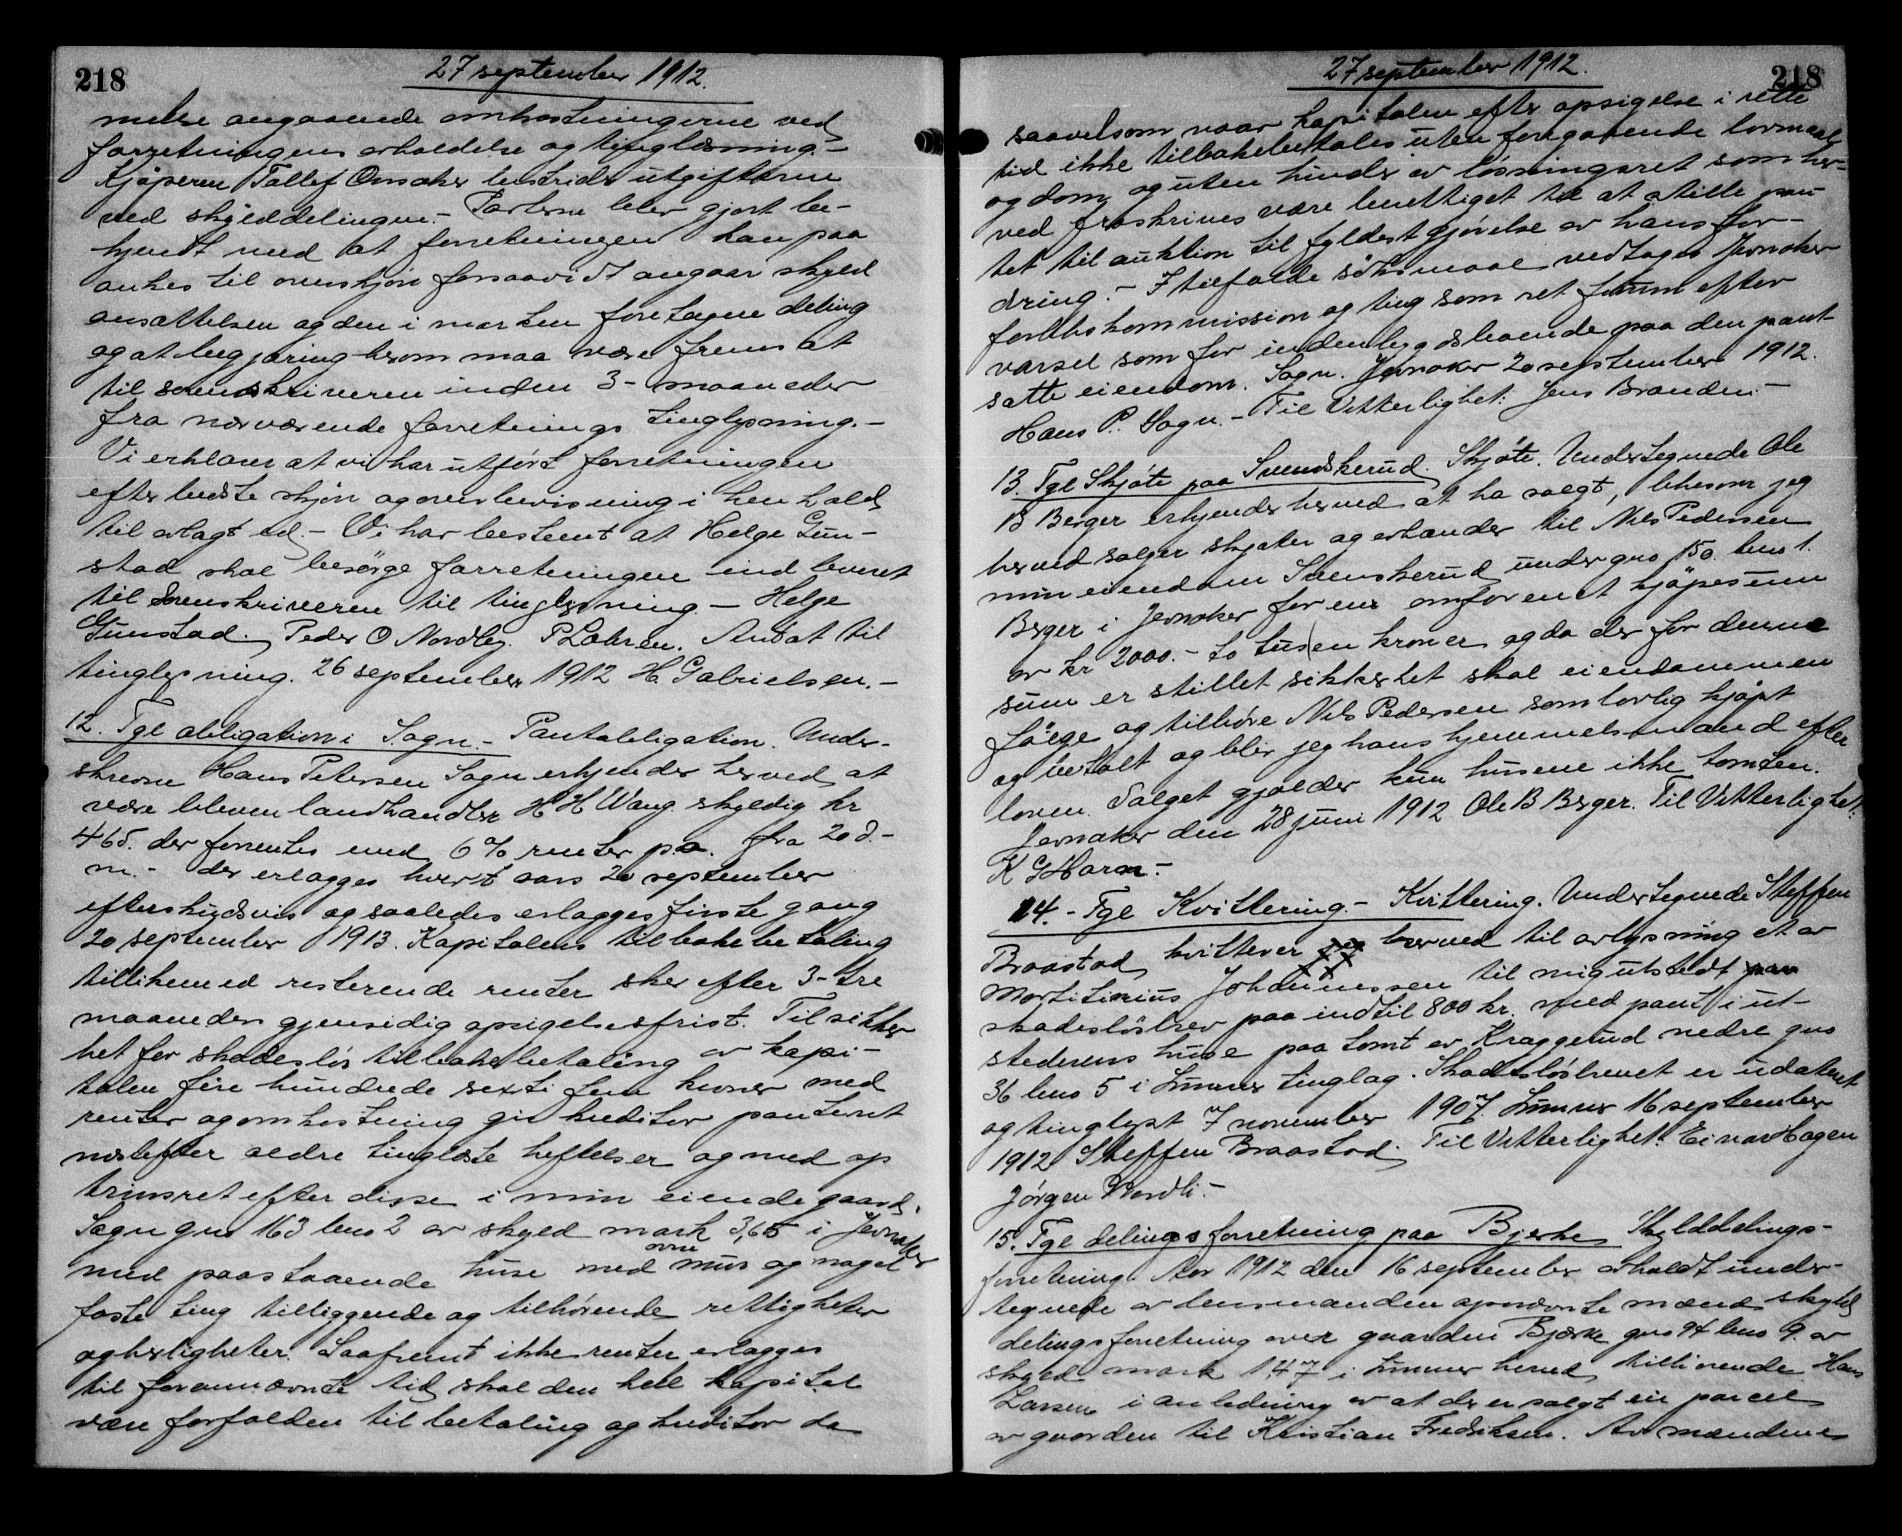 218
27 september 1912.
melse angaaende omkostningerne ved
forretningens avholdelse og tinglæsning.-
Kjøperen Tollef Onsaker bestrider utgifterne
ved skylddelingen.- Parterne blev gjort be-
kjendt med at forretningen kan paa
ankes til overskjøn forsaavidt angaar skyld
ansættelsen og den i marken foretagne deling
og at begjæring herom maa være fremsat
til sorenskriveren inden 3- maaneder
fra nærværende forretnings tinglysning.-
Vi erklærer at vi har utført forretningen
efter bedste skjøn og overbevisning i henhold
til avlagt ed.- Vi har bestemt at Helge Gun-
stad skal besørge forretningen indleveret
til Sorenskriveren til tinglysning.- Helge
Gunstad. Peder O Nordby. P Lahren. Andat til
tinglysning. 26 september 1912 H. Gabrielsen.-
12. Tgl obligation i Sogn.- Pantobligation. Under-
skrevne Hans Petersen Sogn erkjender herved at
være bleven landhandler H H Wang skyldig kr
465. der forrentes med 6 % renter p.a. fra 20 d.-
m.- der erlægges hvert aars 20 september
efterskudsvis og saaledes erlægges første gang
20 september 1913. Kapitalens tilbakebetaling
tillikemed resterende renter sker efter 3- tre
maaneders gjensidig opsigelsesfrist. Til sikker
het for skadesløs tilbakebetaling av kapi-
talen fire hundrede sexti fem kroner med
renter og omkostning gir kreditor panteret
næstefter ældre tinglæste heftelser og med op
trinsret efter disse i min eiende gaard,
Sogn gno 163 bno 2 av skyld mark 3,65 i Jevnaker
med paastaaende huse med ovne mur og naget
faste ting tilliggende og tilhørende rettigheter
og herligheter. Saafremt ikke renter erlægges
til forannævnte tid skal den hele kapital
være forfalden til betaling og kreditor da
27 september 1912.
218
saavelsom naar kapitalen efter opsigelse i rette
tid ikke tilbakebetales uten foregaaende lovmaal
og dom og uten hinder av løsningsret som her-
ved fraskrives være berettiget til at stille pan-
tet til auktion til fyldestgjørelse av hans for-
dring.- I tilfælde søksmaal vedtages Jevnaker
forlikskommission og ting som ret forum efter
varsel som for indenbygdsboende paa den pant-
satte eiendom. Sogn. Jevnaker 20 september 1912.
Hans P. Sogn.- Til Vitterlighet: Jens Branden.-
13. Tgl Skjøte paa Svendskerud. Skjøte. Undertegnede Ole
B Berger erkjender herved at ha solgt, likesom jeg
herved sælger skjøter og avhænder til Nils Pedersen
min eiendom Svenskerud under gno 150. bno 1.
Berger i Jevnaker for en omforenet kjøpesum
av kr 2000.- to tusen kroner og da der for denne
sum er stillet sikkerhet skal eiendommen
følge og tilhøre Nils Pedersen som lovlig kjøpt
og betalt og blir jeg hans hjemmelsmand efter
loven. Salget gjælder kun husene ikke tomten.
Jevnaker den 28 juni 1912 Ole B Berger. Til Vitterlighet:
K G Haram.-
14.- Tgl Kvittering.- Kvittering. Undertegnede Steffen
Braastad kvitterer herved til avlysning et av
Martitinius Johannessen til mig utstedt
skadesløsbrev paa indtil 800 kr. med pant i ut-
stederens huse paa tomt av Kraggerud nedre gno
36 bno 5 i Lunner tinglag. Skadesløsbrevet er udateret
og tinglyst 7 november 1907. Lunner 16 september
1912 Steffen Braastad. Til Vitterlighet: Einar Hagen
Jørgen Nordli.-
15. Tgl delingsforretning paa Bjerke Skylddelings-
forretning. Aar 1912 den 16 september avholdt under-
tegnede av lensmanden opnævnte mænd skyld
delingsforretning over gaarden Bjerke gno 94 bno 9. av
skyld mark 1,47 i Lunner herred tilhørende Hans
Larsen i anledning av at der er solgt en parcel
av gaarden til Kristian Fredriksen. Av mændene